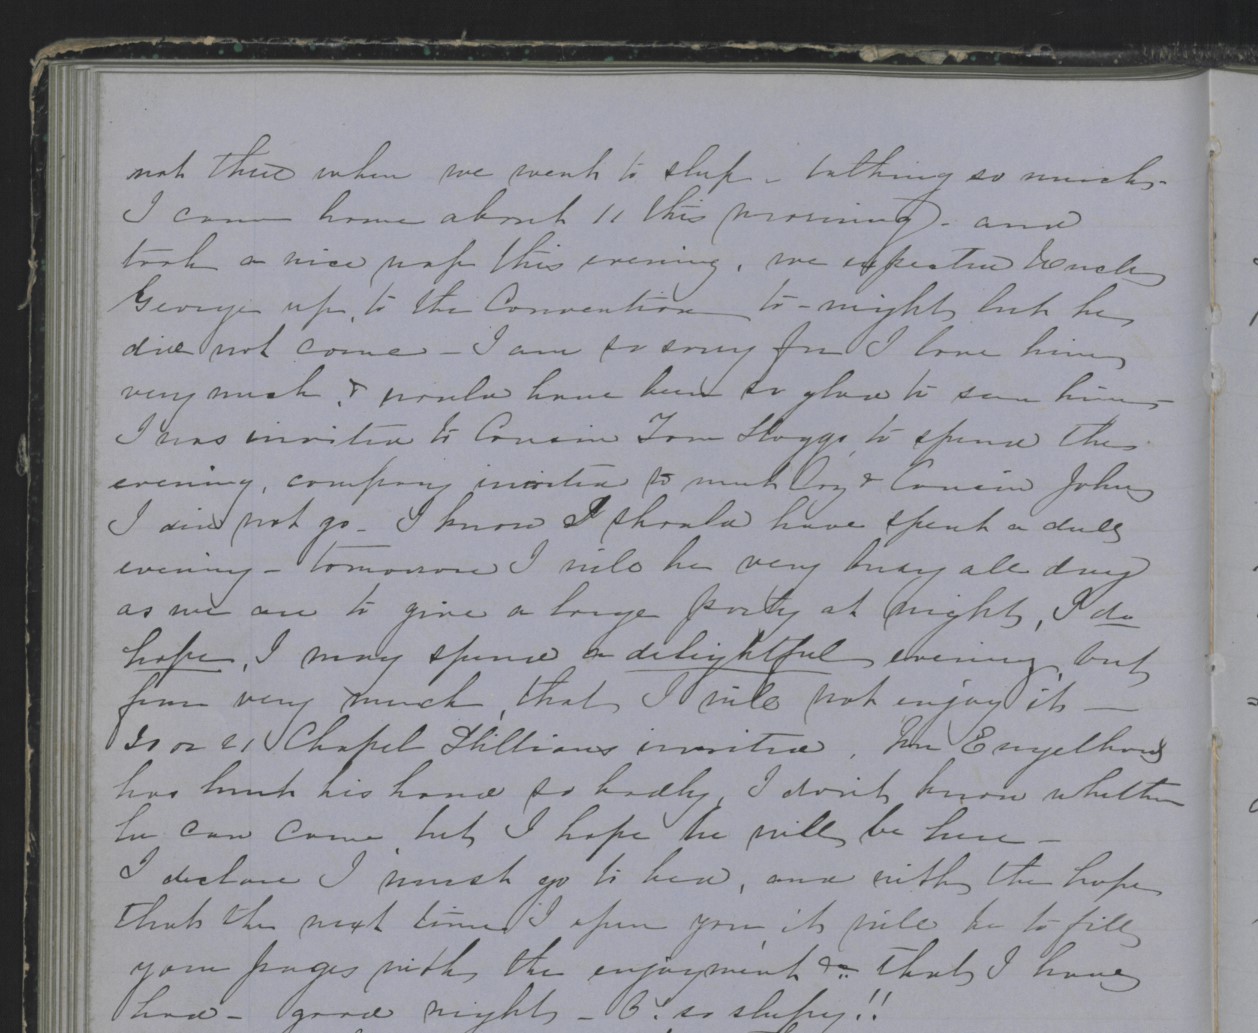 not three when we went to sleep - talking so much -
I came home about 11 this morning - and
took a nice nap this evening. we expected Uncle
George up, to the Convention to-night but he
did not come - I am so sorry for I love him
very much & would have been so glad to seen him -
I was invited to Cousin Tom Hoggs, to spend the
evening, company invited to meet & Cousin John
I did not go - I know I should have spent a dull
evening - tomorrow I will be very busy all day
as we are to give a large party at night, I do
hope, I may spend a delightful evening, but
fear very much, that I will not enjoy it -
20 or 21 Chapel Hillians invited, Mr Engelhard
has hurt his hand so badly, I don't know whether
he can come, but I hope he will be here -
I declare I must go to bed, and with the hope
that the next time I open you, it will be to fill
your pages with the enjoyment &c that I have
had - good night - so sleepy!!